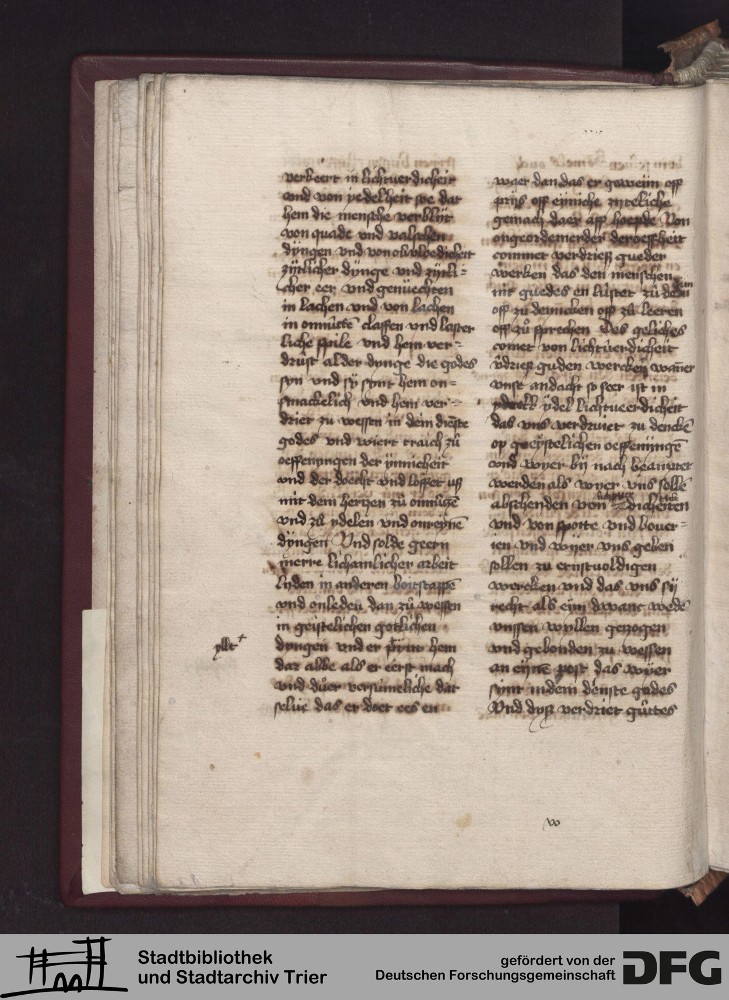 verkeert in lichtuerdicheit
vnd von yedelheit soe dat
hem die mensche verblijt
von quade vnd valschen
dyngen vnd von oluvloedicheit
zijtlicher dynge vnd zijtli=
cher eer, vnd genuechten
in lachen vnd von lachen
in onnutte claffen vnd laster
liche spile vnd hem ver=
drust al der dynge die godes
syn vnd sy synt hem on=
smackelich vnd hem ver=
driet zu wessen in dem dienste
godes vnd wiert traich zu
oeffenyngen der ynnicheit
vnd der doecht vnd losset uss
mit dem hertzen zu onnutzen
vnd zu ydelen vnd onreyne
dyngen Vnd solde geern
merre lichamlicher arbeit
lyden in anderen boitscappe
vnd onleden dan zu wessen
in geistelichen gotlichen
dyngen vnd er hem
dat selbe als er eerst mach
vnd duer versumeliche dat
selue das er doet ees en
waer dan das er gewein off
prijs off eyniche zijteliche
gemach daer aff hoepde Von
ongeordemerder deroefheit
commet verdriess gueder
werken das den menschen
nit guedes en lustet zu dem
off zu dencken off zu leeren
off zu sprechen Des geliches
comet von lichtuerdicheit
vdriess guden wercken waner
vnse andacht so seer ist in
ydel lichtueerdicheit
das vns verdruiet zu dencke
op geeystelichen oeffenynge
vnd wyer bij nach beanxtet
werden als wyer vns solle
abschenden von dicheiten
vnd von spotte vnd bouer=
ien vnd wyer vns geben
sollen zu ernstuoldigen
wercken vnd das vns sy
recht als eyn dwanc wede
vnssen wyllen getzogen
vnd gebonden zu wessen
an eyne post das wyer
synt in dem dienste godes
Vnd dyss verdriet guttes
w
Stadtbibliothek
und Stadtarchiv Trier
gefördert von der
Deutschen Forschungsgemeinschaft
DFG